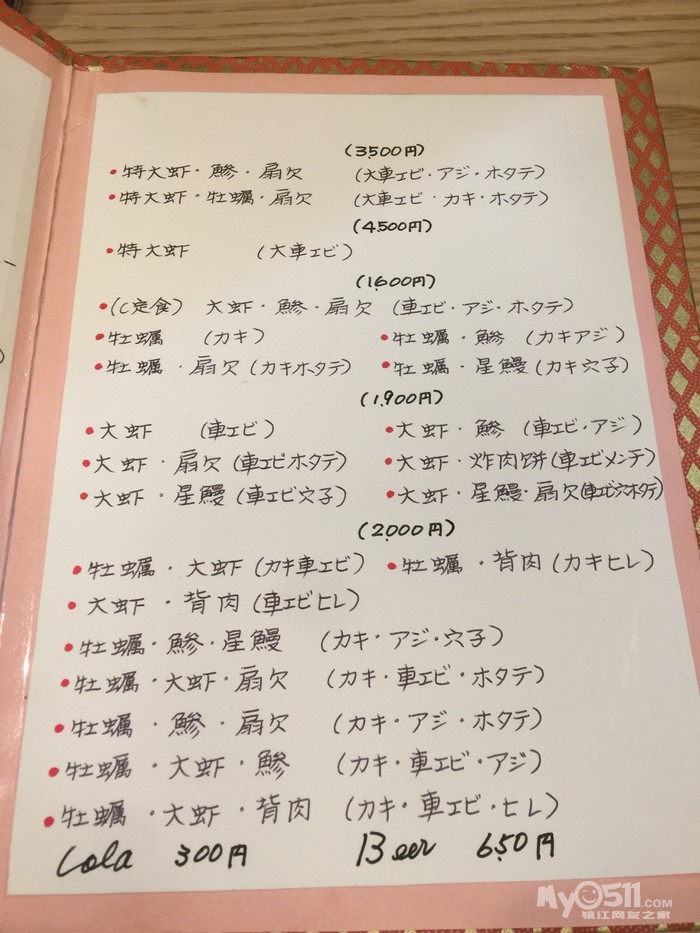 (3,500円)
•特大虾・鯵・扇欠 (大車エビ・アジ・ホタテ)
•特大虾・牡蠣・扇欠 (大車エビ・カキ・ホタテ)
(4,500円)
•特大虾 (大車エビ)
(1,600円)
•(C定食) 大虾・鯵・扇欠 (車エビ・アジ・ホタテ)
•牡蠣 (カキ) •牡蠣・鯵 (カキアジ)
•牡蠣・扇欠(カキホタテ) •牡蠣・星鰻(カキ穴子)
(1,900円)
•大虾 (車エビ) •大虾・鯵 (車エビ・アジ)
•大虾・扇欠(車エビホタテ) •大虾・炸肉饼(車エビメンテ)
•大虾・星鰻(車エビ穴子) •大虾・星鰻・扇欠(車エビ穴ホタテ)
(2,000円)
•牡蠣・大虾(カキ車エビ) •牡蠣・背肉(カキヒレ)
•大虾・背肉(車エビヒレ)
•牡蠣・鯵・星鰻 (カキ・アジ・穴子)
•牡蠣・大虾・扇欠 (カキ・車エビ・ホタテ)
•牡蠣・鯵・扇欠 (カキ・アジ・ホタテ)
•牡蠣・大虾・鯵 (カキ・車エビ・アジ)
•牡蠣・大虾・背肉 (カキ・車エビ・ヒレ)
Cola 300円 Beer 650円
My0511.COM
镇江网友之家